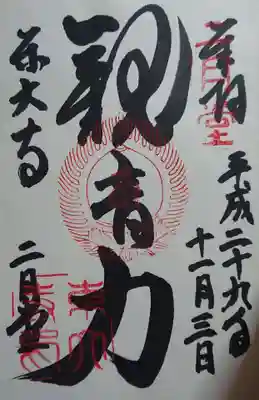 奉拝
平成二十九年
十一月三日
観音力
二月堂
東大寺